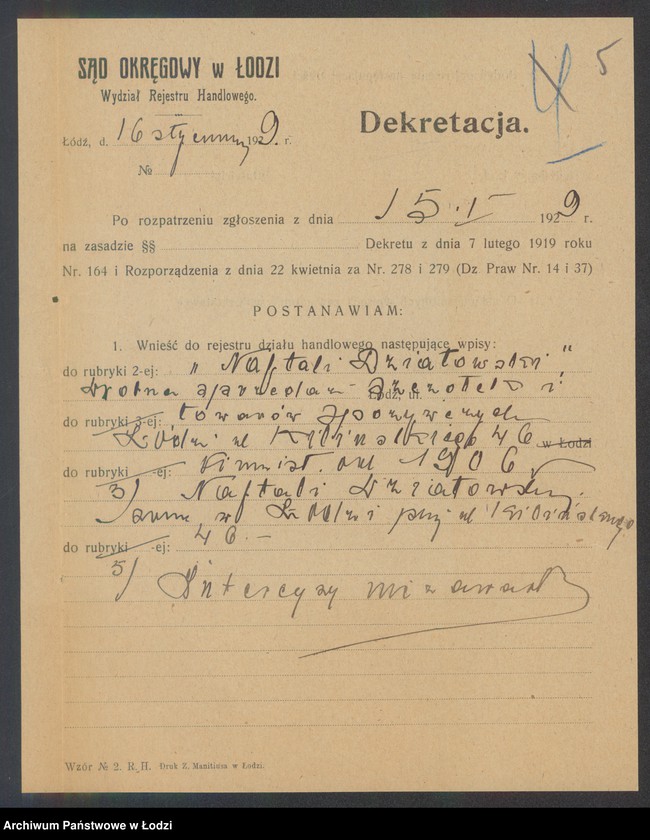 5
SĄD OKRĘGOWY w ŁODZI
Wydział Rejestru Handlowego.
Łódź, d. 16 stycznia 1929. r.
Dekretacja.
№
Po rozpatrzeniu zgłoszenia z dnia 15.I 1929 r.
na zasadzie §§ Dekretu z dnia 7 lutego 1919 roku
Nr. 164 i Rozporządzenia z dnia 22 kwietnia za Nr. 278 i 279 (Dz Praw Nr. 14 i 37)
POSTANAWIAM:
1. Wnieść do rejestru działu handlowego następujące wpisy:
do rubryki 2-ej: „Naftali Działowski"
sprzedaż i
do rubryki 3-ej: towarów spożywczych
Łódź, ul Kilińskiego 46 w Łodzi
do rubryki -ej: Firma ist. od 1906
3) Naftali Działowski,
zam. w Łodzi przy ul Kilińskiego
do rubryki -ej: 46.—
5) Intercyzy nie zawarł
Wzór № 2. R. H. Druk Z. Manitiusa w Łodzi.
Archiwum Państwowe w Łodzi